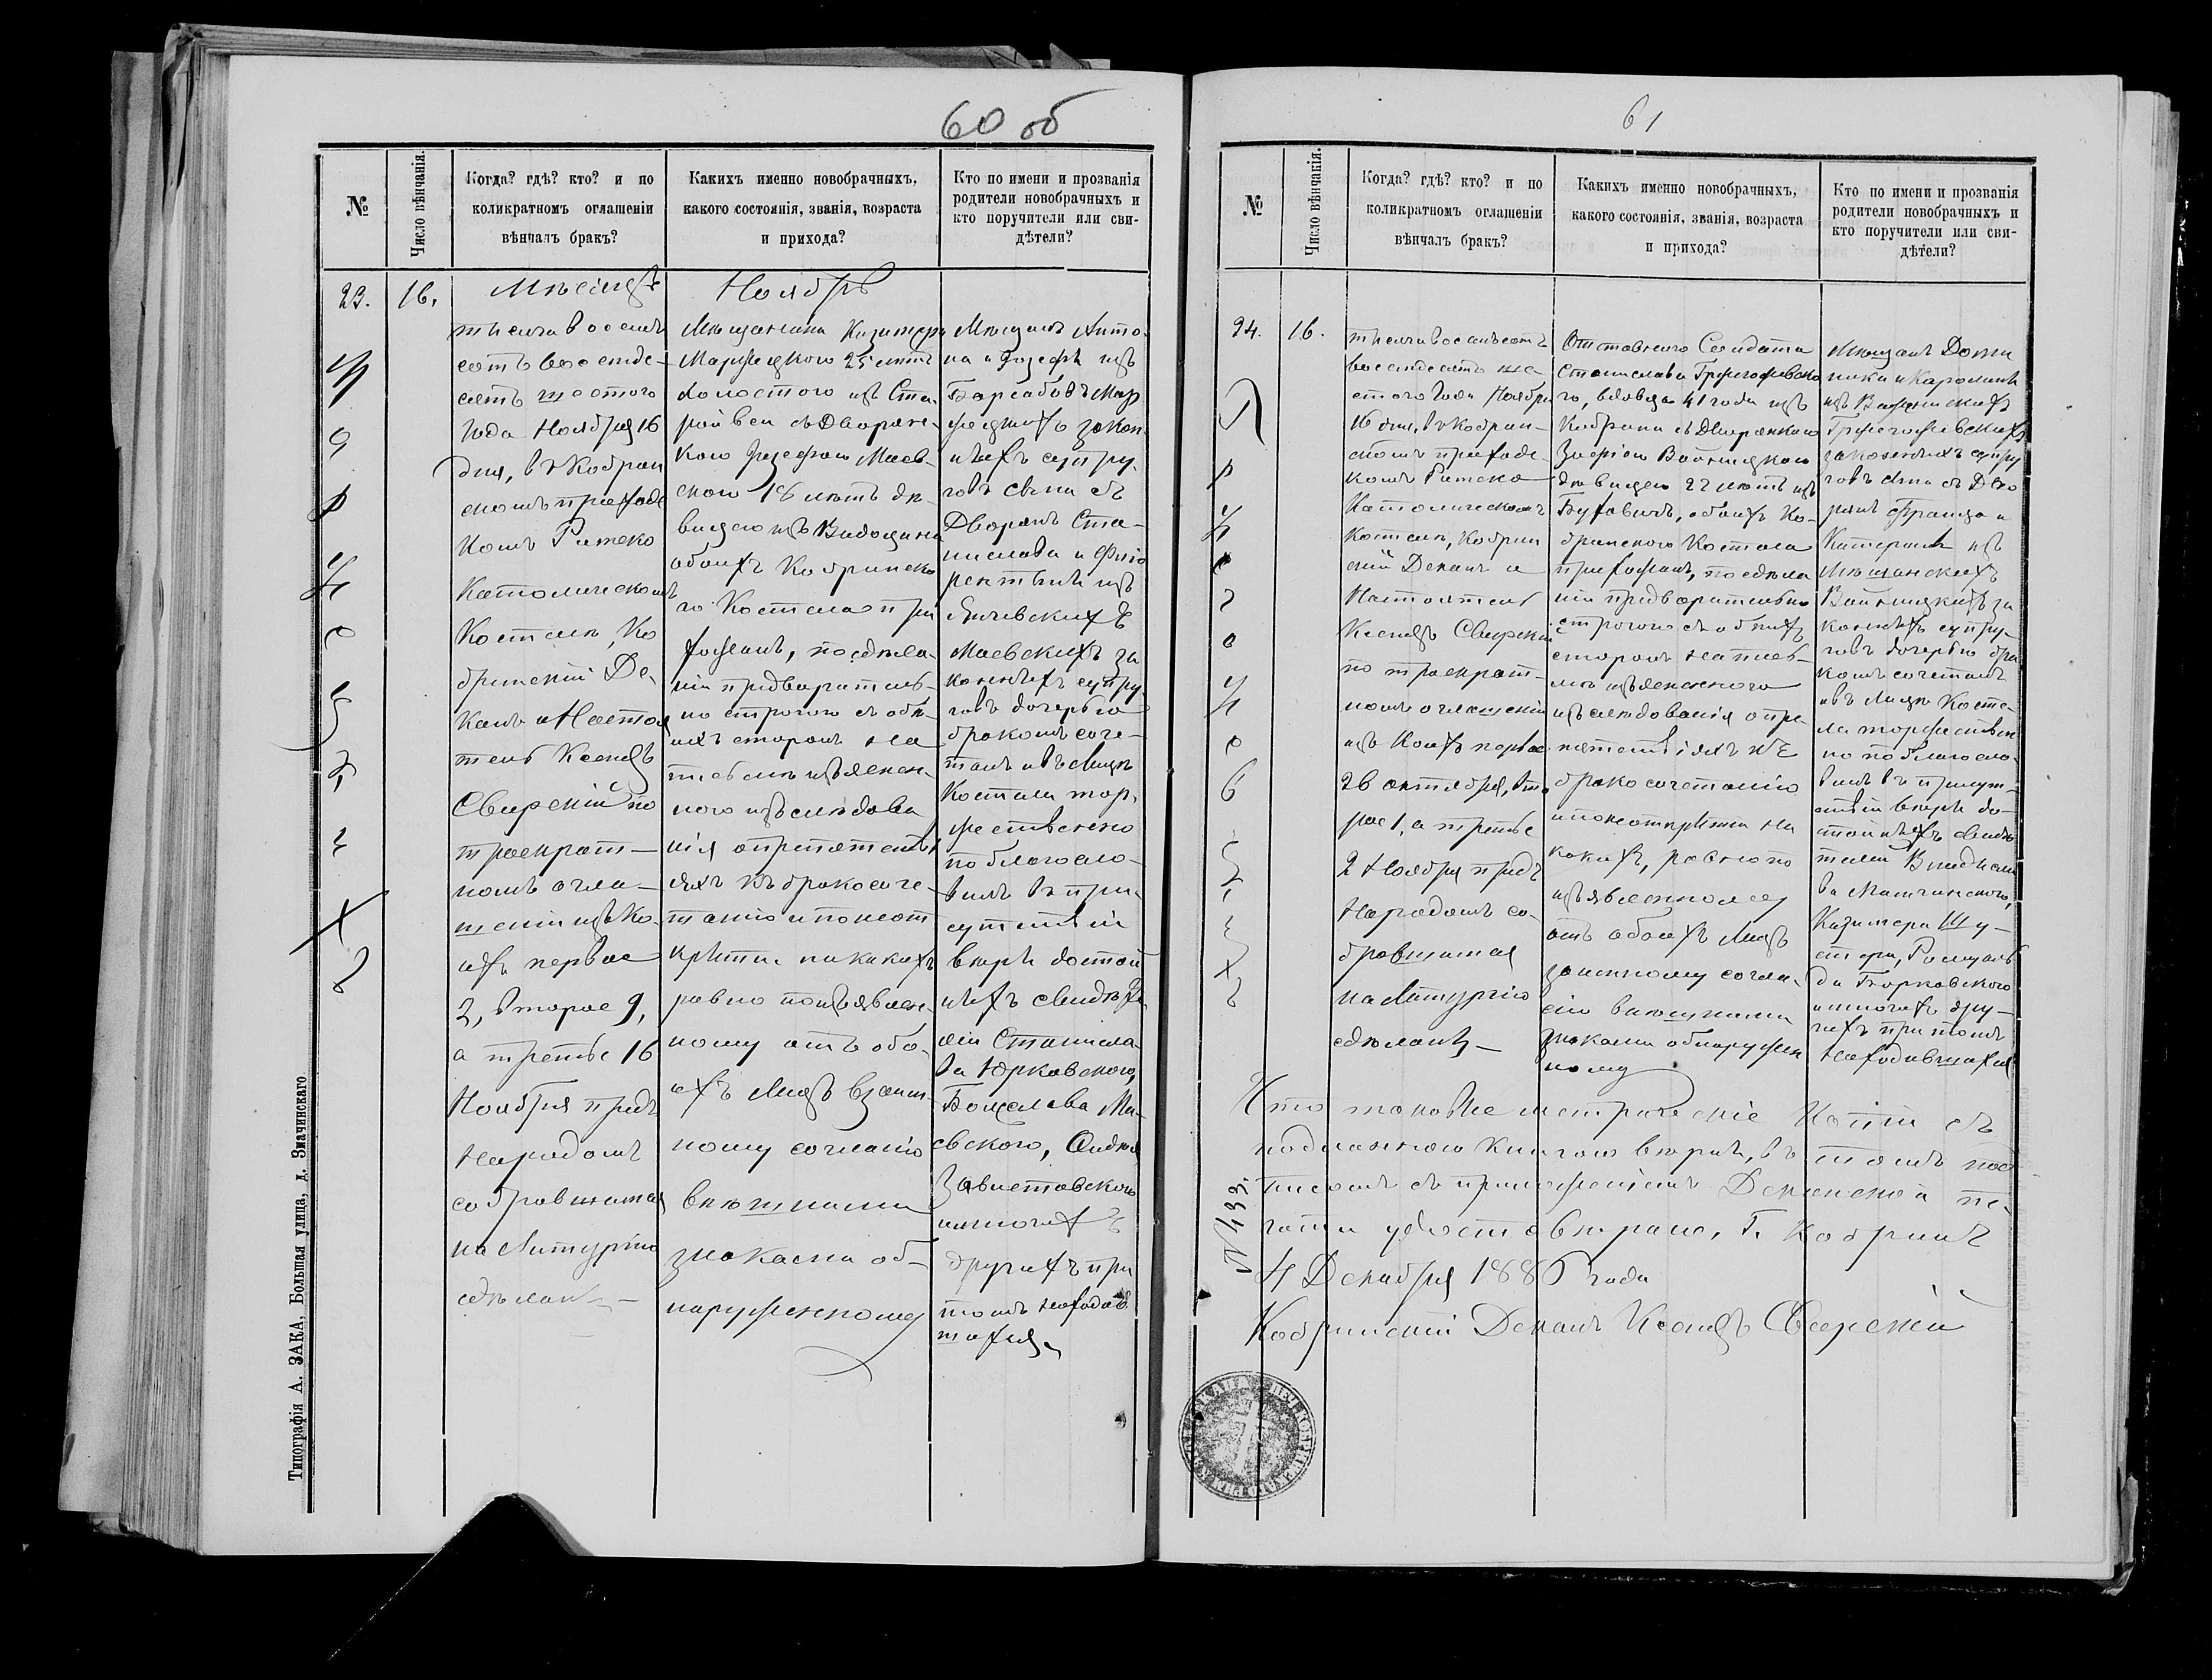 60 об
№
Число вѣнчанія.
Когда? гдѣ? кто? и по
коликратномъ оглашеніи
вѣнчалъ бракъ?
Какихъ именно новобрачныхъ,
какого состоянія, званія, возраста
и прихода?
Кто по имени и прозванія
родители новобрачныхъ и
кто поручители или сви-
дѣтели?
23.
16.
Мѣсяцъ
тысяча восемь
сотъ восемде-
сятъ шестого
года Ноября 16
дня, въ Кобрин
скомъ приход
комъ Римско
Католическомъ
Костелѣ, Ко
бринскій Де-
канъ и Настоя
тель Ксендзъ
Свирскій по
троекрат-
номъ огла-
шеніи изъ Ко-
ихъ первое
2, второе 9,
а третье 16
Ноября предъ
Народомъ
собравшимся
на Литургію
сдѣлан
Ноябрь
Мѣщанина Казимера
Маржецкого 25 лѣтъ
холостого изъ Ста-
рой вси съ Дворян-
кою Іозефою Маев-
скою 18 лѣтъ дѣ-
вицею изъ
обоихъ Кобринска
го Костела при
хожанъ, по сдѣла-
ніи предварительно
но строгого съ обѣ-
ихъ сторонъ на
письмѣ изъяснен-
ного изслѣдова
нія о препятстві
яхъ къ бракосоче-
танію и по неот
крытіи никакихъ
равно по изъявлен-
ному отъ обо-
ихъ лицъ взаим-
ному согласію
внѣшними
знаками об-
наруженному
Мѣщанъ Анто-
на и Іозефы изъ
Барсабовъ Мар
жецкихъ закон-
ныхъ супру-
говъ сына съ
Дворянъ Ста-
нислава и Фло
рентины изъ
Янчевскихъ
Маевскихъ за
конныхъ супру-
говъ дочерью
бракомъ соче-
талъ и въ лицѣ
Костела тор-
жественно
поблагосло-
вилъ въ при-
сутствіи
вѣры достой
ныхъ свидѣте
лей Станисла
ва Юрковского,
Болеслава Ма-
евского,
и многихъ
другихъ при
томъ находив
шихся.
Типографія А. ЗАКА, Большая улица, д. Значинскаго
61
№
Число вѣнчанія.
Когда? гдѣ? кто? и по
коликратномъ оглашеніи
вѣнчалъ бракъ?
Какихъ именно новобрачныхъ,
какого состоянія, званія, возраста
и прихода?
Кто по имени и прозванія
родители новобрачныхъ и
кто поручители или сви-
дѣтели?
24.
16.
тысяча восемьсотъ
восемдесятъ ше-
стого года Ноября
16 дня, въ Кобрин-
скомъ приход-
комъ Римско
Католическомъ
Костелѣ, Кобрин
скій Деканъ и
Настоятель
Ксендзъ Свирскій
по троекрат-
номъ оглашеніи
изъ коихъ первое
26 октября, вто
рое 1, а третье
2 Ноября предъ
Народомъ со-
бравшимся
на Литургію
сдѣланы
Отставного Солдата
Станислава Гржегоржевска
го, вдовца 41 года изъ
Кобрина съ Дворянкою
Войницкою
дѣвицею 22 лѣтъ изъ
обоихъ Ко-
бринского Костела
прихожанъ, по сдѣла
ніи предварительно
строгого съ обѣихъ
сторонъ на пись-
мѣ изъясненного
изслѣдованія о пре-
пятствіяхъ къ
бракосочетанію
и по неоткрытіи ни
какихъ, равно по
изъявленному
отъ обоихъ лицъ
взаимному согла-
сію внѣшними
знаками обнаружен
ному
Мѣщанъ Доми
ника и Каролины
изъ
Гржегоржевскихъ
законныхъ супру
говъ сына съ Дво
рянъ Франца и
Катерины изъ
Войницкихъ за
конныхъ супру-
говъ дочерью бра
комъ сочеталъ
и въ лицѣ Косте-
ла торжествен
но поблагосло-
вилъ въ присут-
ствіи вѣры до-
стойныхъ свидѣ
телей Владисла
ва
Казимера Шу-
Ромуаль
да Борковского
и многихъ дру-
гихъ при томъ
находившихся
Что таковые метрическіе Копіи съ
подлинною книгою вѣрны, въ томъ под-
писомъ съ приложеніемъ Деканской пе-
чати удостовѣряю. Г. Кобринъ
4 Декабря 1886 года
Кобринскій Деканъ Ксендзъ Свирскій
№ 433.